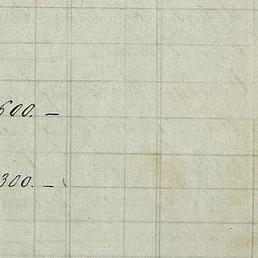 600. —
300. —